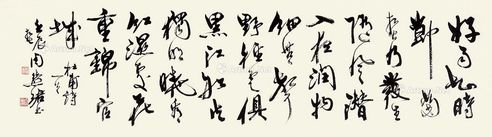 好雨知時
節當
春乃發生
随風潜
入夜润物
細無聲
野径雲俱
黑江船火
獨明曉看
紅濕處花
重錦官
城 杜甫詩